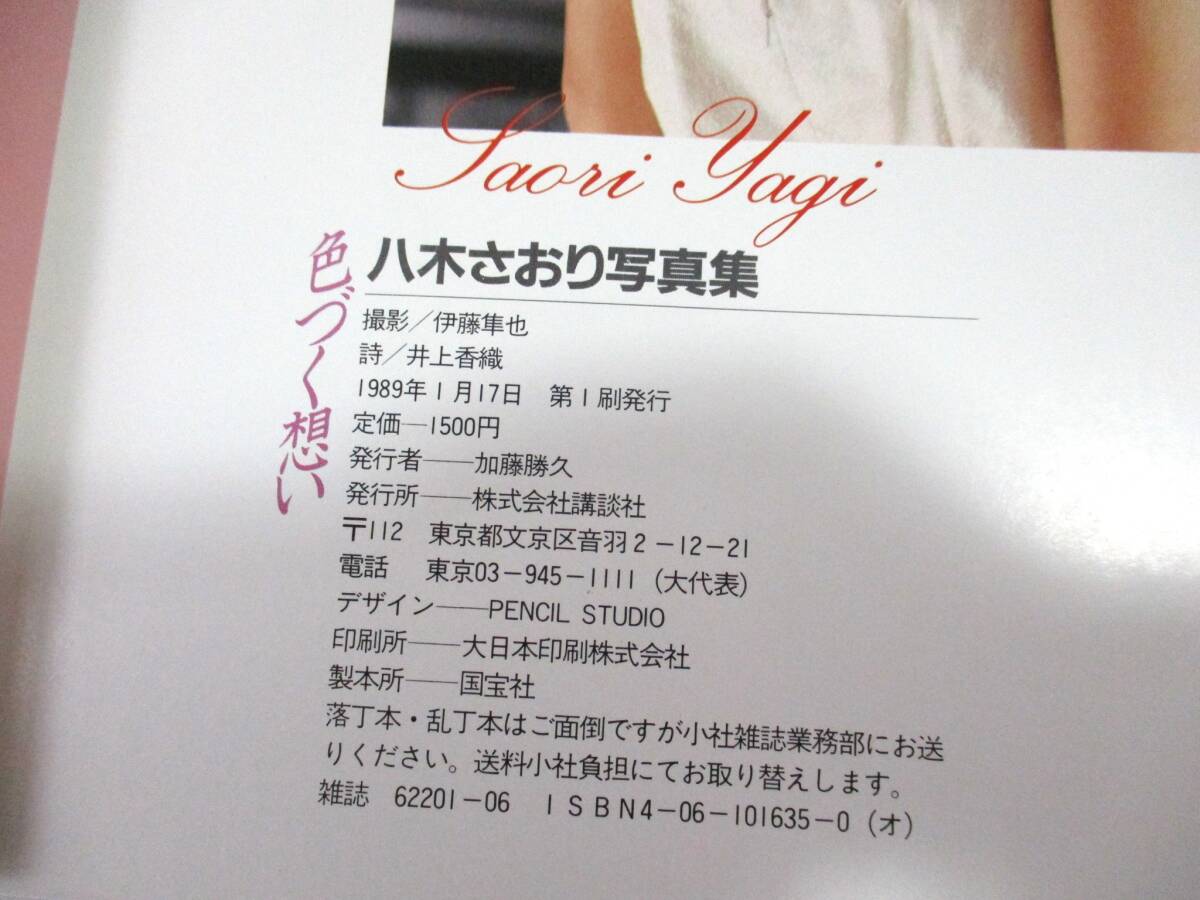 Saori Yagi
色づく想い
八木さおり写真集
撮影／伊藤隼也
詩／井上香織
1989年1月17日　第1刷発行
定価―1500円
発行者――加藤勝久
発行所――株式会社講談社
〒112　東京都文京区音羽2-12-21
電話　東京03-945-1111（大代表）
デザイン――PENCIL STUDIO
印刷所――大日本印刷株式会社
製本所――国宝社
落丁本・乱丁本はご面倒ですが小社雑誌業務部にお送
りください。送料小社負担にてお取り替えします。
雑誌　62201-06　ISBN4-06-101635-0（オ）